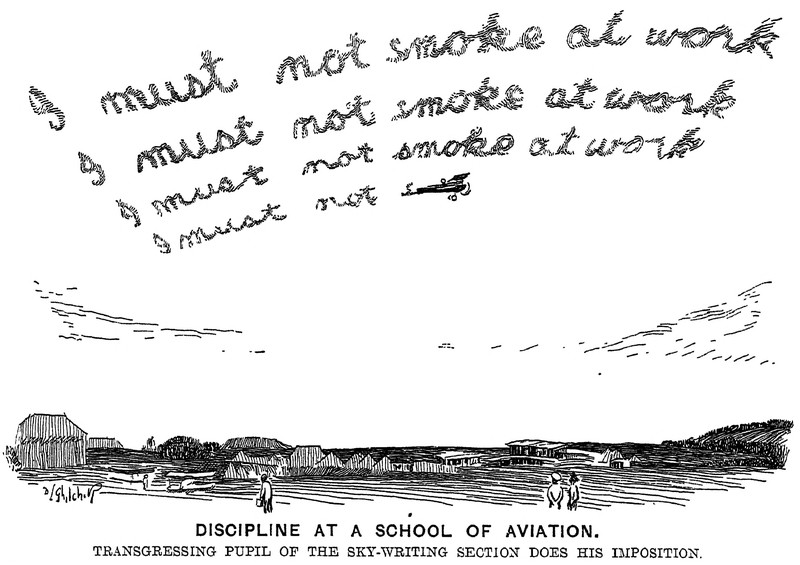 I must not smoke at work
I must not smoke at work
I must not smoke at work
I must not s
DISCIPLINE AT A SCHOOL OF AVIATION.
TRANSGRESSING PUPIL OF THE SKY-WRITING SECTION DOES HIS IMPOSITION.